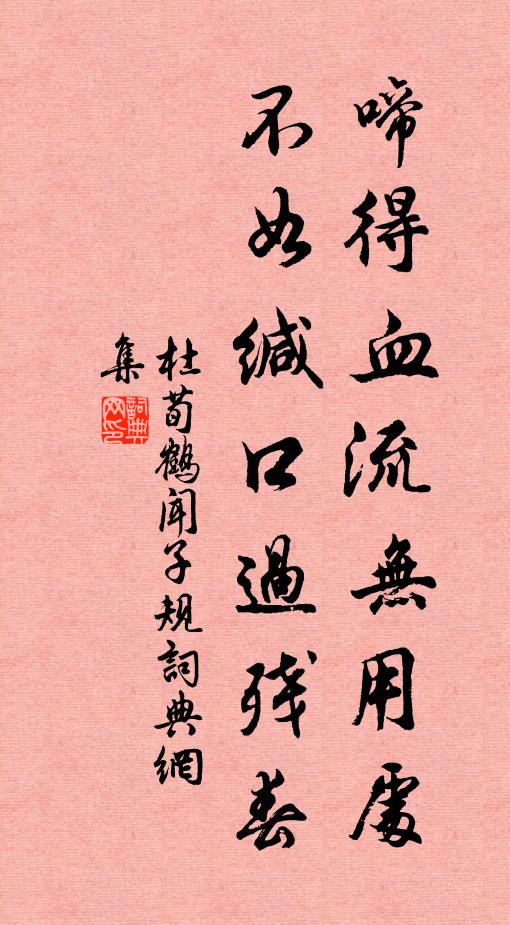 啼得血流無用處
不如缄口過残春
杜荀鶴聞子規詞典網
集
詞典网印